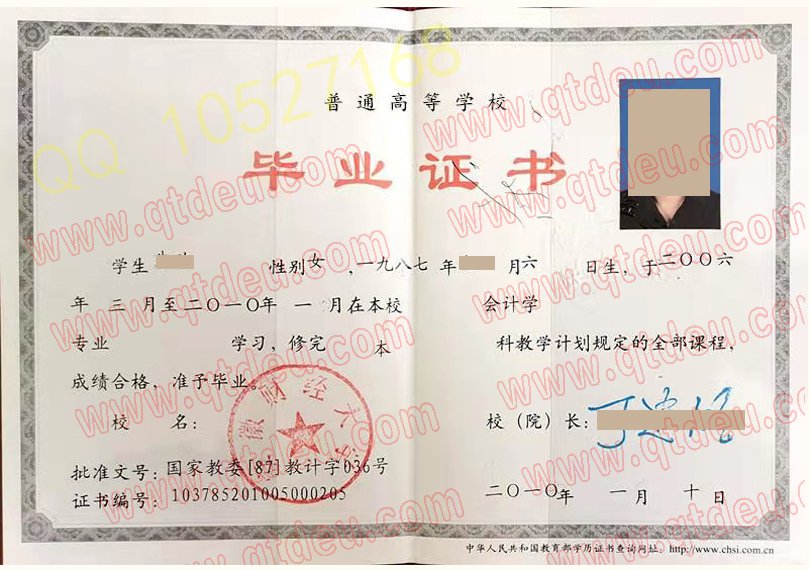 普通高等学校
毕业证书
学生 性别 女 ，一九八七 年 月 六 日生，于二〇〇六
年 三 月至二〇一〇年 一 月在本校 会计学
专业 学习，修完 本 科教学计划规定的全部课程，
成绩合格，准予毕业。
校 名： 校（院）长：
批准文号：国家教委[87]教计字036号
证书编号：103785201005000205
二〇一〇年 一月 十日
中华人民共和国教育部学历证书查询网址：http://www.chsi.com.cn
徽财经大学
QQ 10527168
www.qtdeu.com